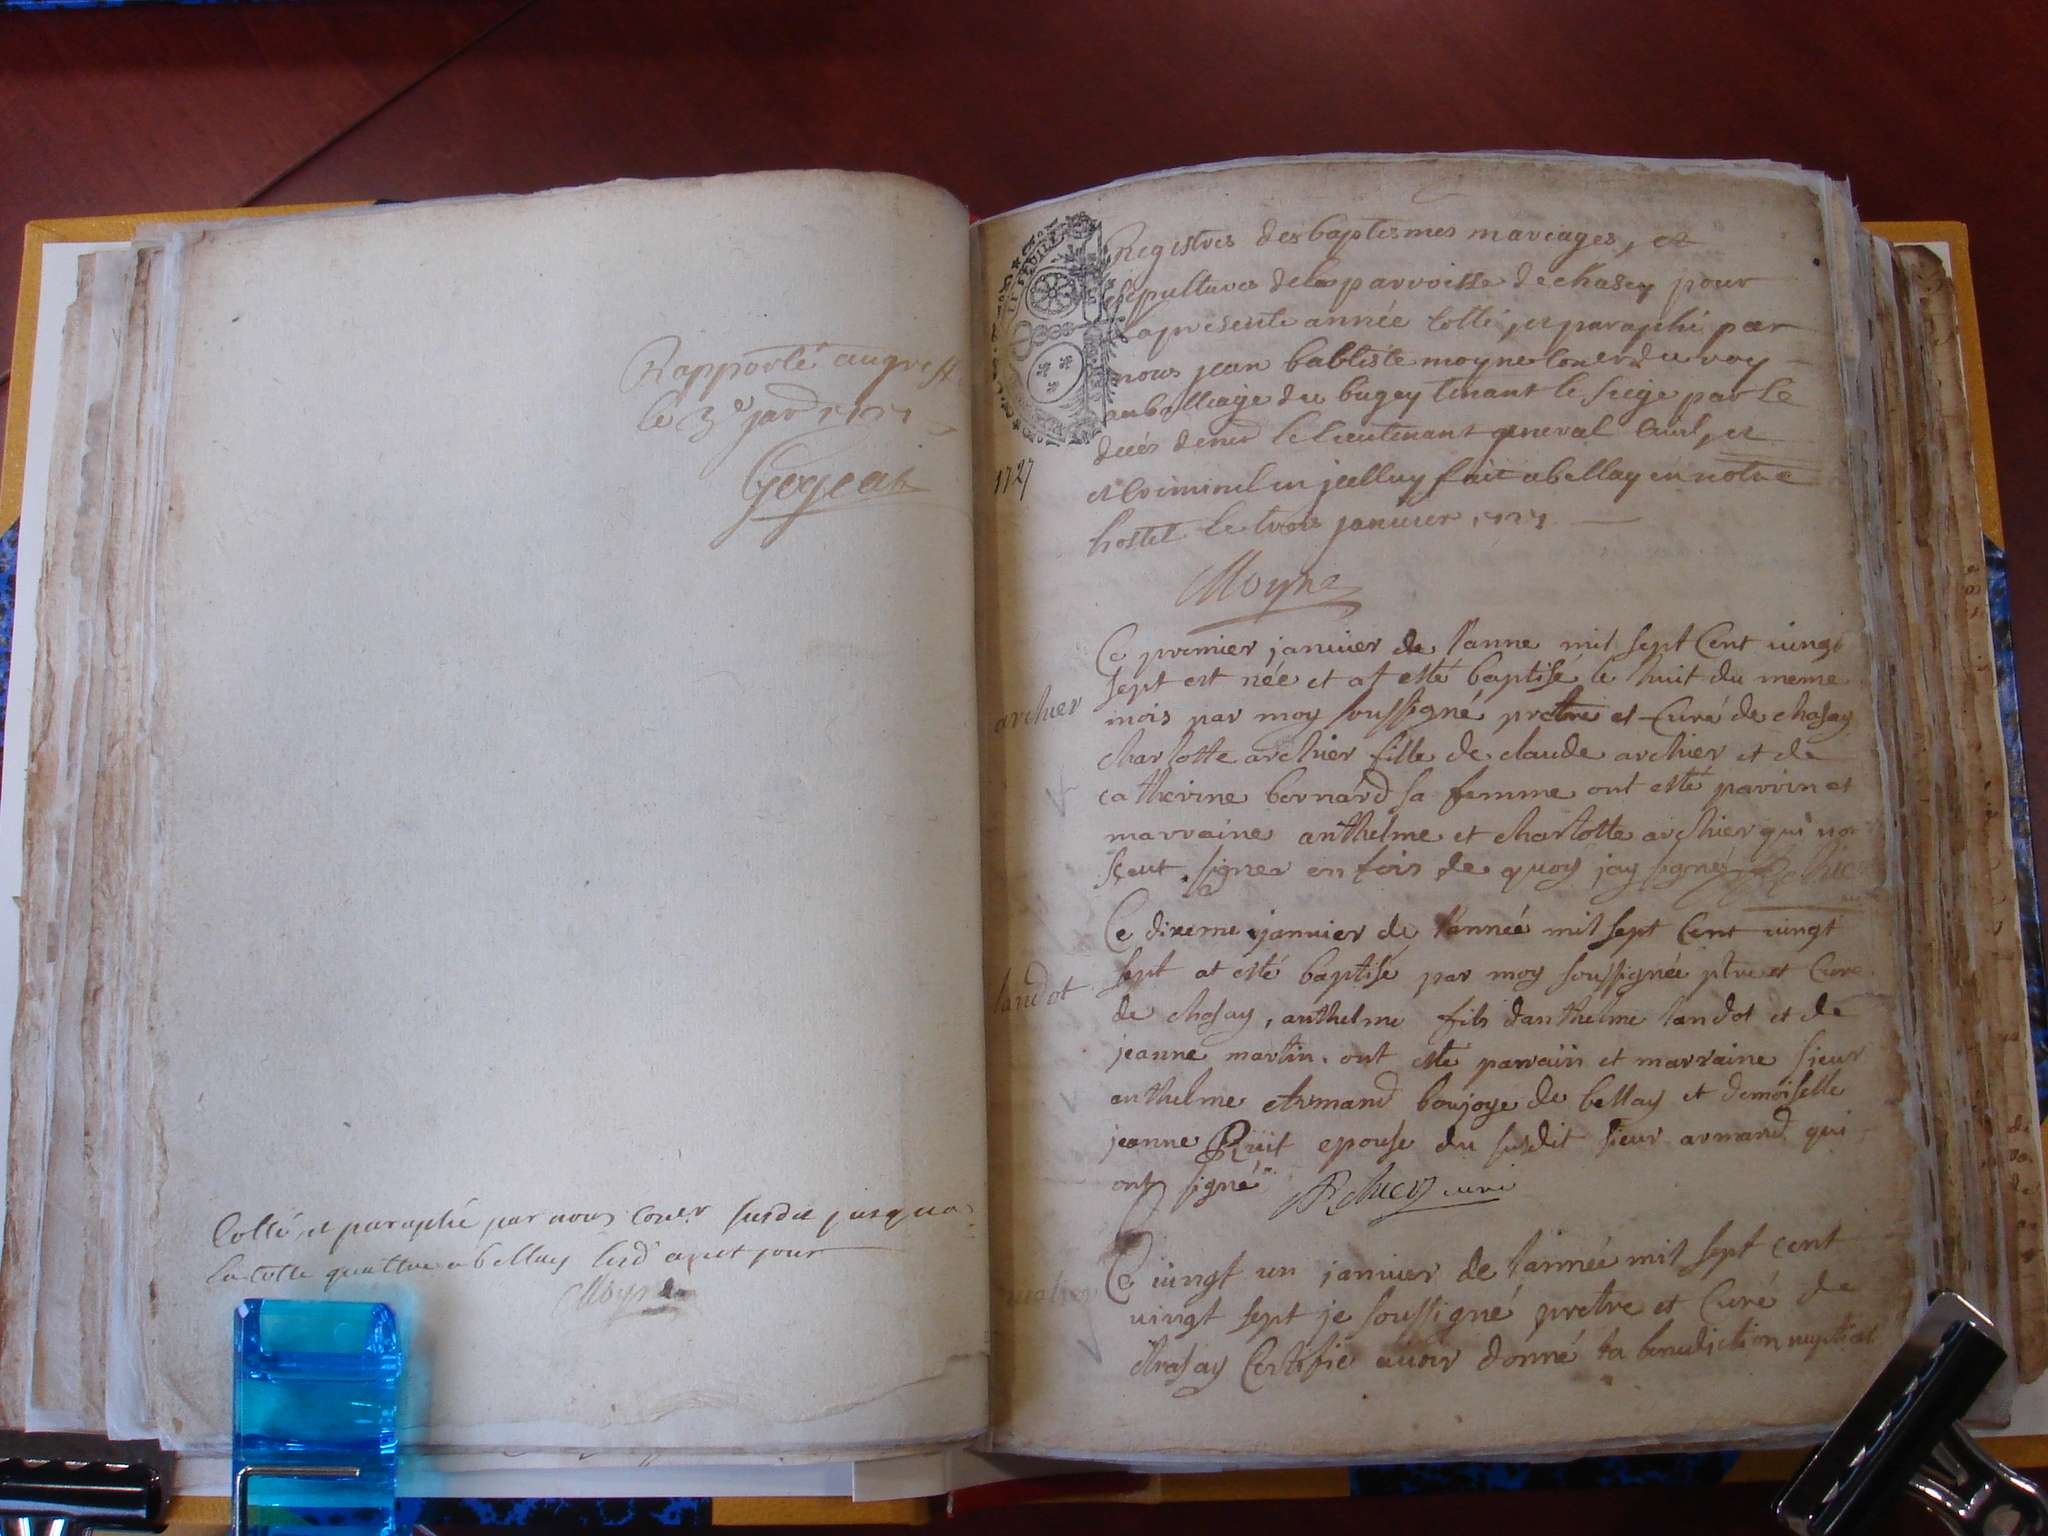 Rapporté au greffe
le 3e janr 1727
Gojeat
Cotté, et paraphé par nous coner susdit jusqua
la cotte quattre a bellay lesd an et jour
Moyne
Registres des baptesmes mariages, et
sepultures de la parroisse de chasey pour
la presente année Cotté, et paraphé par
nous jean babtiste moyne Coner du roy
au balliage du bugey tenant le siege par le
decés de mr le lieutenant general Civil, et
et Criminel en jcelluy fait a bellay en notre
hostel le trois janvier 1727
1727
Moyne
archier
Ce premier janvier de l'anne mil sept Cent vingt
sept est née et at esté baptisé le huit du meme
mois par moy soussigné pretre et Curé de chasay
charlotte archier fille de claude archier et de
catherine bernard sa femme ont esté parrin et
marraine anthelme et charlotte archier qui no
sceut signer en fois de quoy jay signé
landot
Ce dixeme janvier de l'année mil sept Cent vingt
sept at esté baptise par moy soussignée ptre et Cure
de chasay, anthelme fils danthelme landot et de
jeanne martin. ont esté parrain et marraine sieur
anthelme Armand boujoye de bellay et demoiselle
jeanne Ruit epouse du susdit sieur armand qui
ont signé
Archier curé
Ce vingt un janvier de l'année mil sept cent
vingt sept je soussigné pretre et Curé de
Chasay Certifie avoir donné la benediction nuptial